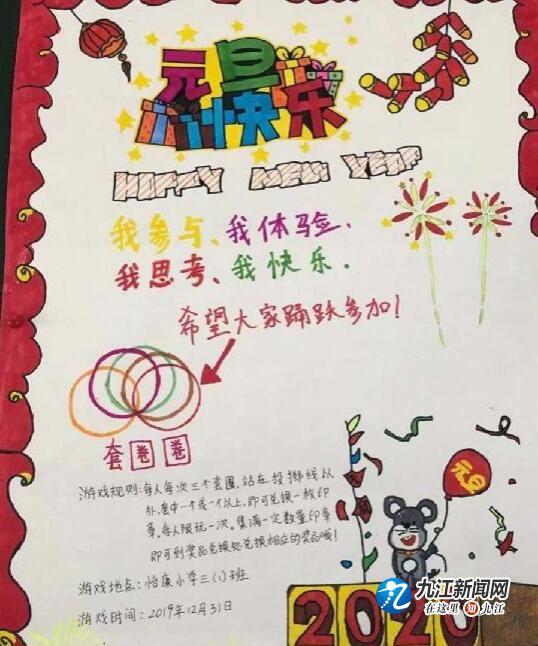 元旦
快乐
HAPPY NEW YEAR
我参与、我体验、
我思考、我快乐.
希望大家踊跃参加!
套圈圈
游戏规则:每人每次三个套圈,站在投掷线以
外,套中一个或一个以上,即可兑换一枚印
章,每人限玩一次。集满一定数量印章
即可到奖品兑换处兑换相应的奖品哦!
游戏地点:怡康小学三(1)班
游戏时间:2019年12月31日
元旦
2020
九江新闻网
在这里 知九江